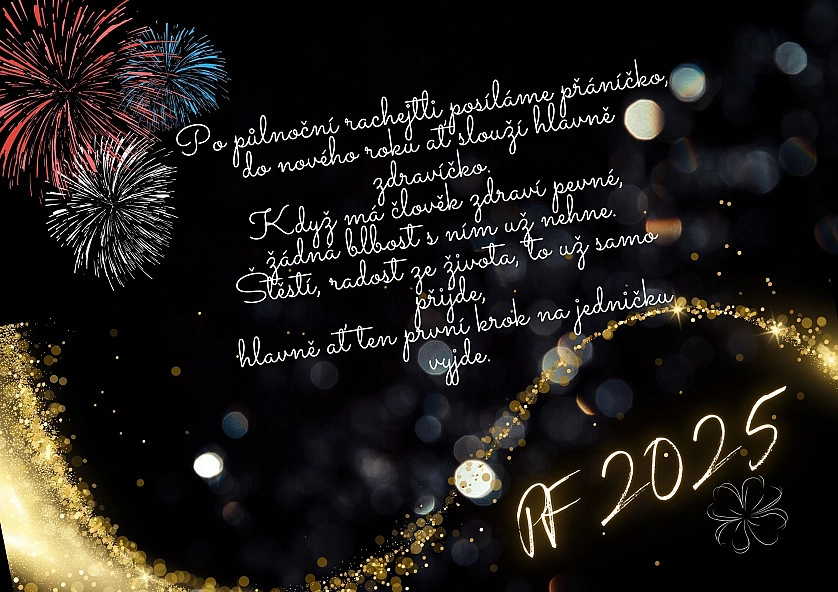 Po půlnoční rachejtli posíláme přáníčko,
do nového roku ať slouží hlavně
zdravíčko.
Když má člověk zdraví pevné,
žádná blbost s ním už nehne.
Štěstí, radost ze života, to už samo
přijde,
hlavně ať ten první krok na jedničku
vyjde.
PF 2025